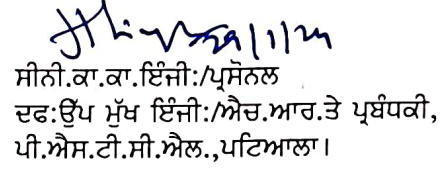 29/1/24
ਸੀਨੀ.ਕਾ.ਕਾ.ਇੰਜੀ:/ਪ੍ਰਸੋਨਲ
ਦਫ:ਉੱਪ ਮੁੱਖ ਇੰਜੀ:/ਐਚ.ਆਰ.ਤੇ ਪ੍ਰਬੰਧਕੀ,
ਪੀ.ਐਸ.ਟੀ.ਸੀ.ਐਲ.,ਪਟਿਆਲਾ।